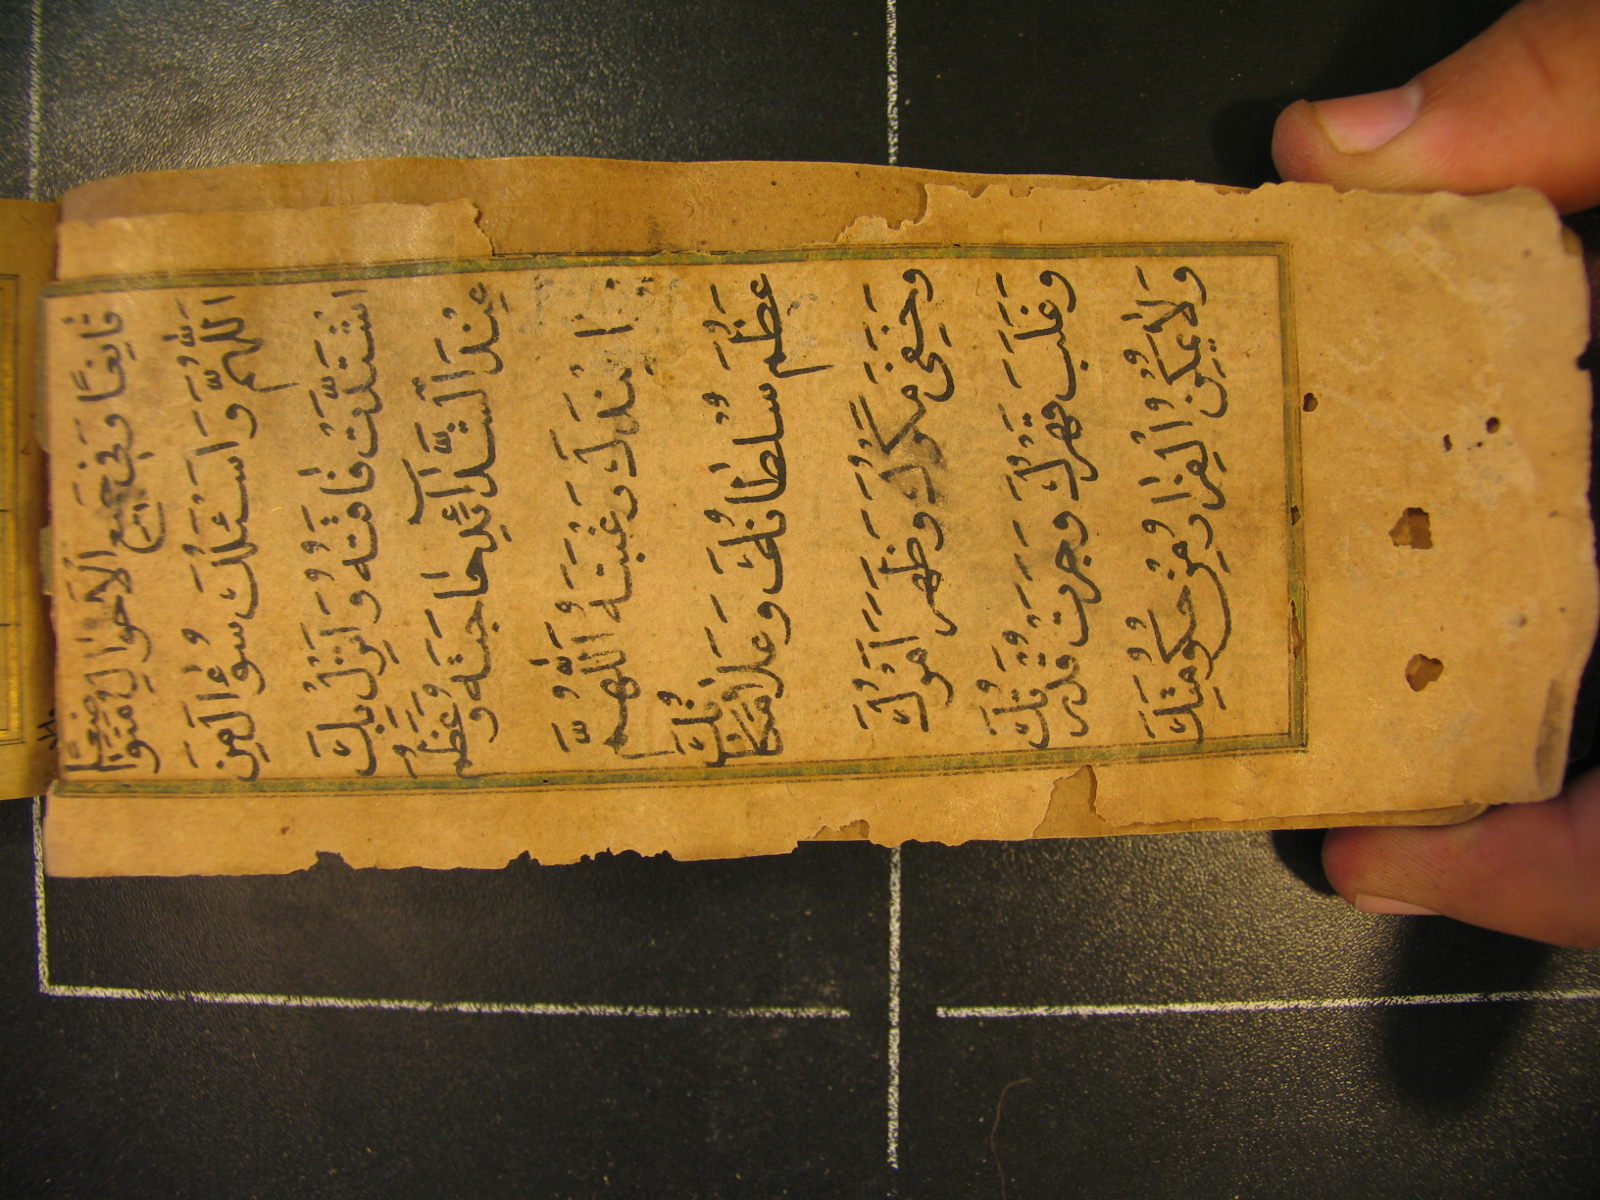 قَانِعًا وَفِي جَمِيعِ الْاَحْوَالِ مُتَوَاضِعًا
اَللّٰهُمَّ وَاَسْئَلُكَ سُؤٰالَ مَنِ
اشْتَدَّتْ فَاقَتُهُ وَاَنْزَلَ بِكَ
عِنْدَ الشَّدَآئِدِ حَاجَتَهُ وَعَظُمَ
عِنْدَكَ رَغْبَتُهُ اَللّٰهُمَّ
عَظُمَ سُلْطَانُكَ وَعَلَا مَكَانُكَ
وَخَفِيَ مَكْرُكَ وَظَهَرَ اَمْرُكَ
وَغَلَبَ قَهْرُكَ وَجَرَتْ قُدْرَتُكَ
وَلَا يُمْكِنُ الْفِرَارُ مِنْ حُكُومَتِكَ